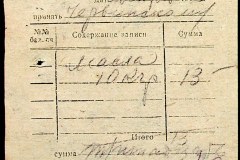 принять Червинскому
№№ бал. сч. Содержание записи Сумма
Масла
10 кгр 13
Итого 13
сумма